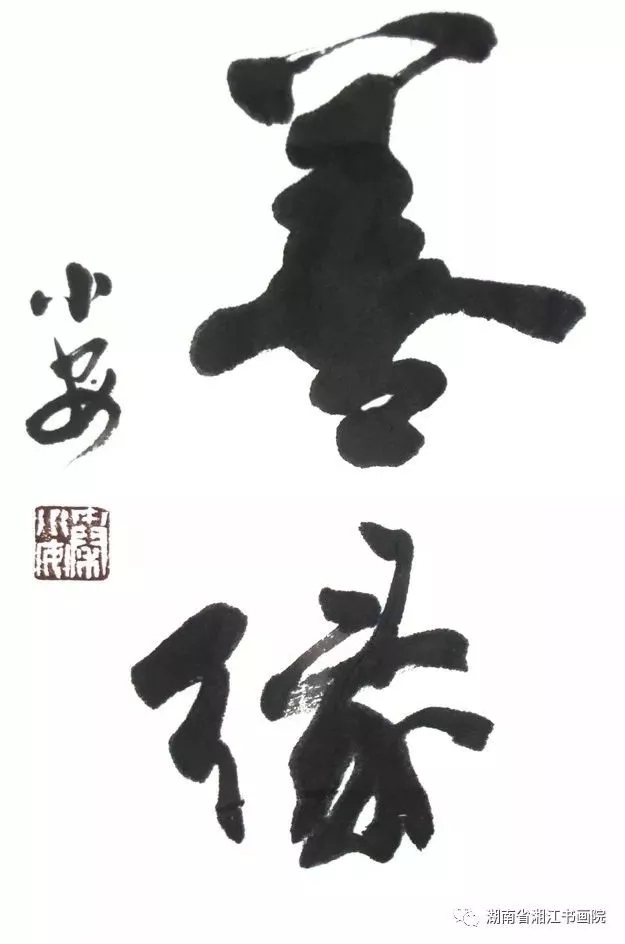 善缘
小安
湖南省湘江书画院